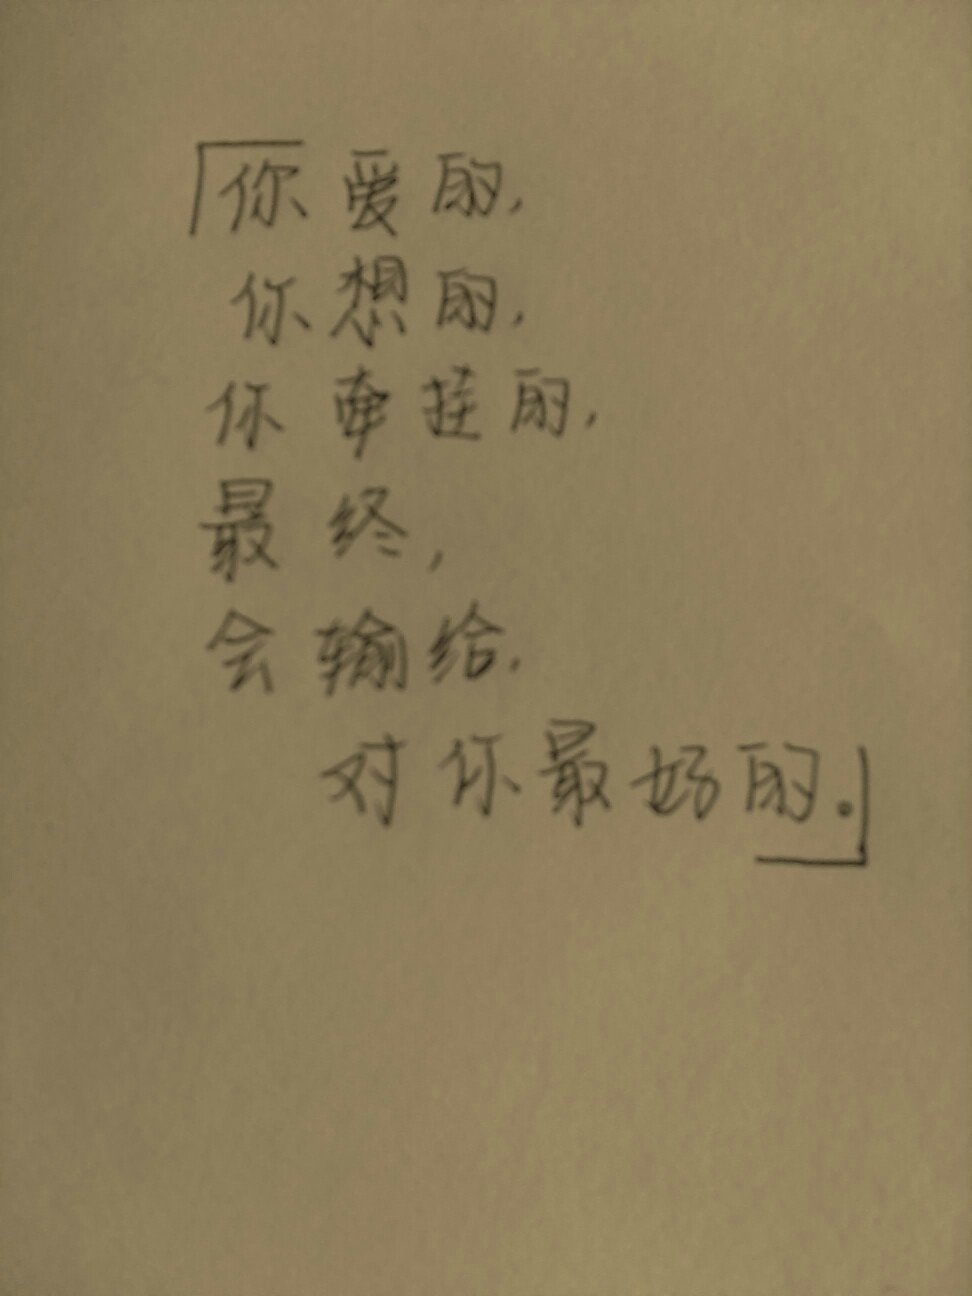 「你爱的,
你想的,
你牵挂的,
最终,
会输给.
对你最好的。」